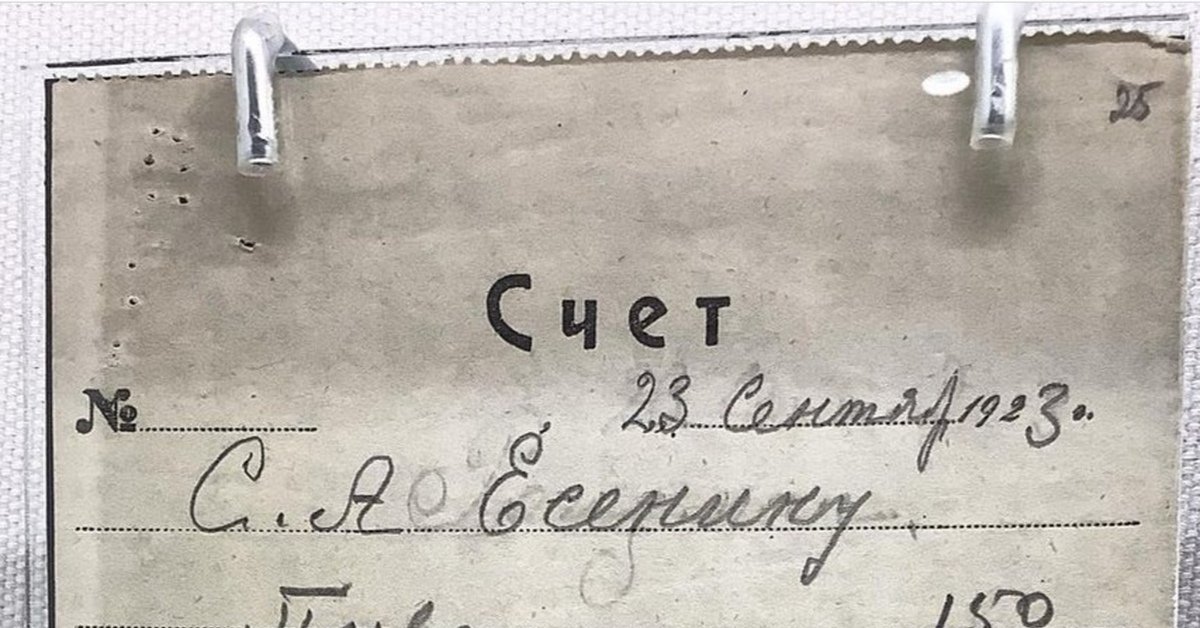 25
Счет
№ 23 Сентяб 1923 г.
С. А Есенину
Пиво 150